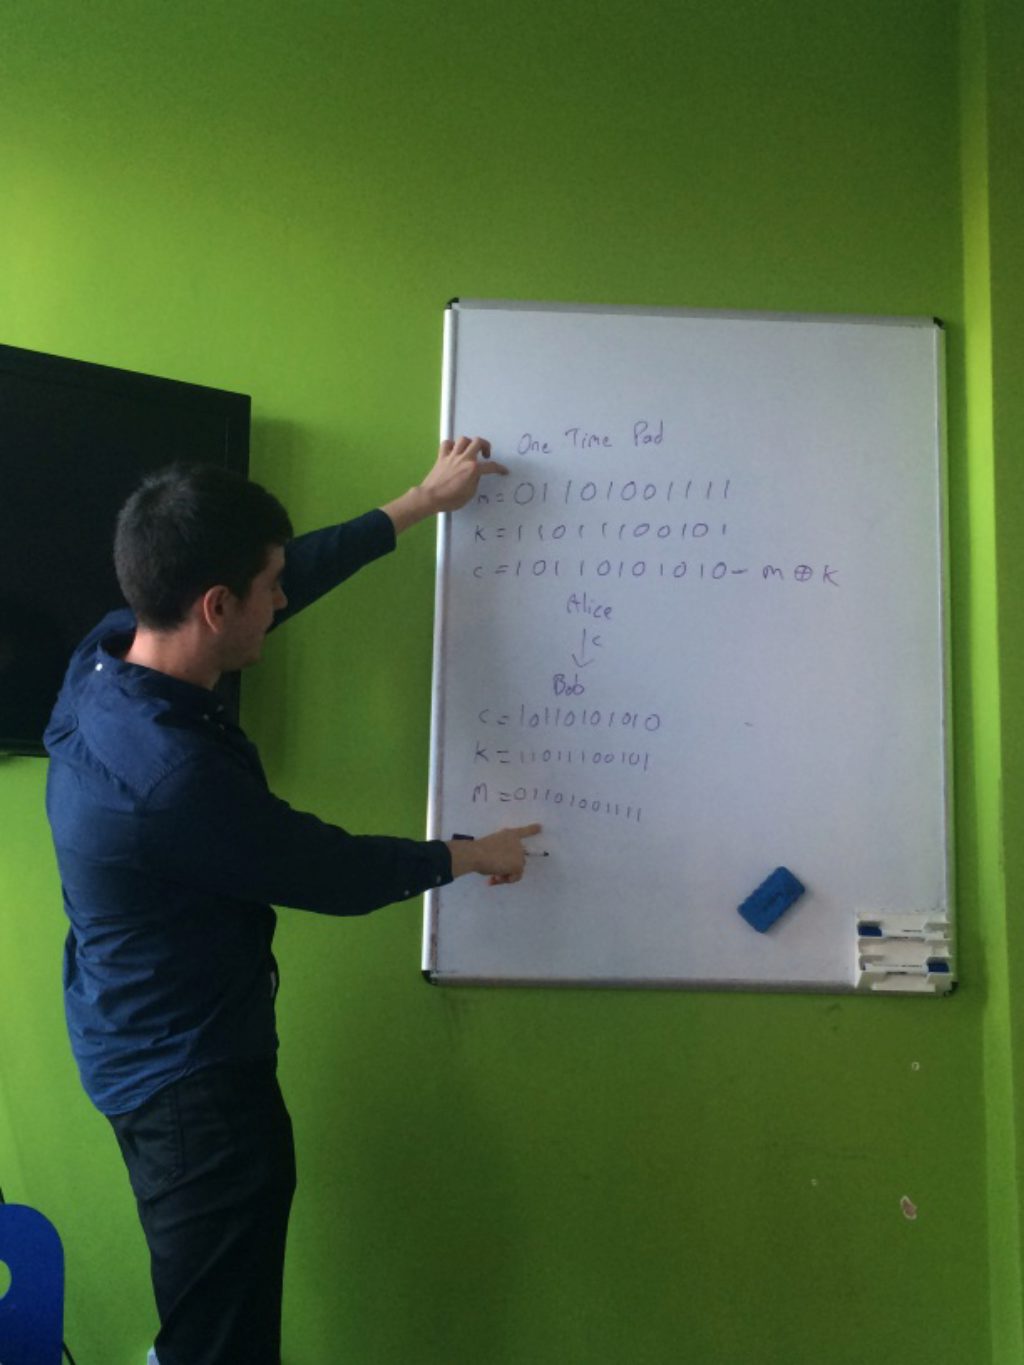 One Time Pad
m = 01101001111
k = 11011100101
c = 10110101010 - m ⊕ k
Alice
↓ c
Bob
c = 10110101010
k = 11011100101
m = 01101001111